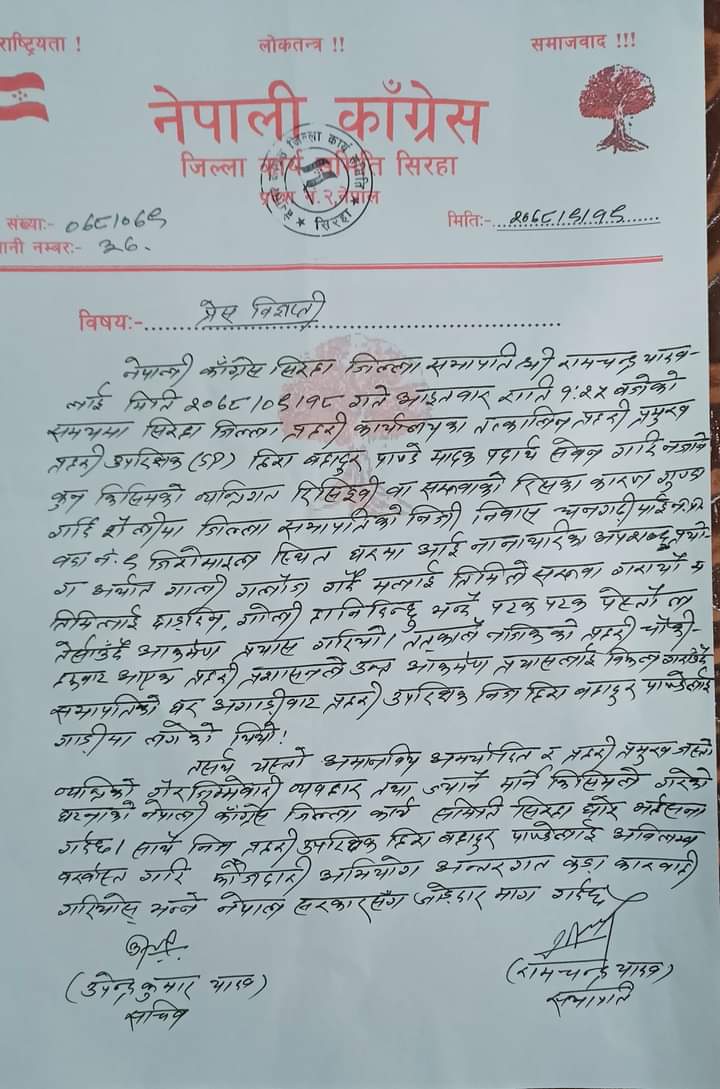 राष्ट्रियता !
लोकतन्त्र !!
समाजवाद !!!
नेपाली काँग्रेस
जिल्ला कार्य समिति सिरहा
प्रदेश नं. २, नेपाल
संख्याः- ०७८/०७९
मितिः- २०७८/९/१९
नी नम्बरः- ३७.
विषयः- प्रेस विज्ञप्ती
नेपाली काँग्रेस सिरहा जिल्ला सभापति श्री रामचन्द्र यादव-
लाई मिति २०७८/०९/१८ गते आइतवार राती ९:२५ बजेको
समयमा सिरहा जिल्ला प्रहरी कार्यालयका तत्कालिन प्रहरी प्रमुख
प्रहरी उपरिक्षक (SP) हिरा बहादुर पाण्डे मादक पदार्थ सेवन गरि
कुन किसिमको व्यक्तिगत रिसिइवी वा सरुवाको रिसका कारण गुण्डा
गर्दि शैलीमा जिल्ला सभापतिको निजी निवास धनगढीमाई न.पा
वडा नं. ९ स्थित घरमा आई नानाथरिका अपशब्द प्रयो
ग अर्थात गाली गलौज गर्दै मलाई तिमिले सरुवा गरायौ म
तिमिलाई छाड्दिन, गोली हानिदिन्छु भन्दै पटक पटक पेस्तोल
तेर्साउँदै आक्रमण प्रयास गरियो। तत्काल नजिकको प्रहरी चौकी-
बाट आएका प्रहरी प्रशासनले उक्त आक्रमण प्रयासलाई विफल गराउँदै
सभापतिको घर अगाडीबाट प्रहरी उपरिक्षक निज हिरा बहादुर पाण्डेलाई
गाडीमा लगेको थियो!
तसर्थ यस्तो अमानविय अमर्यादित र प्रहरी प्रमुख जस्तो
व्यक्तिको गैर जिम्मेवारी व्यवहार तथा ज्यानै मार्ने किसिमले गरेको
घटनाको नेपाली काँग्रेस जिल्ला कार्य समिति सिरहा घोर भर्त्सना
गर्दछ। साथै निज प्रहरी उपरिक्षक हिरा बहादुर पाण्डेलाई अविलम्ब
बर्खास्त गरि फौजदारी अभियोग अन्तरगत कडा कारवाही
गरियोस् भन्ने नेपाल सरकारसँग जोडदार माग गर्दछ
(उपेन्द्र कुमार यादव)
सचिव
(रामचन्द्र यादव)
सभापति